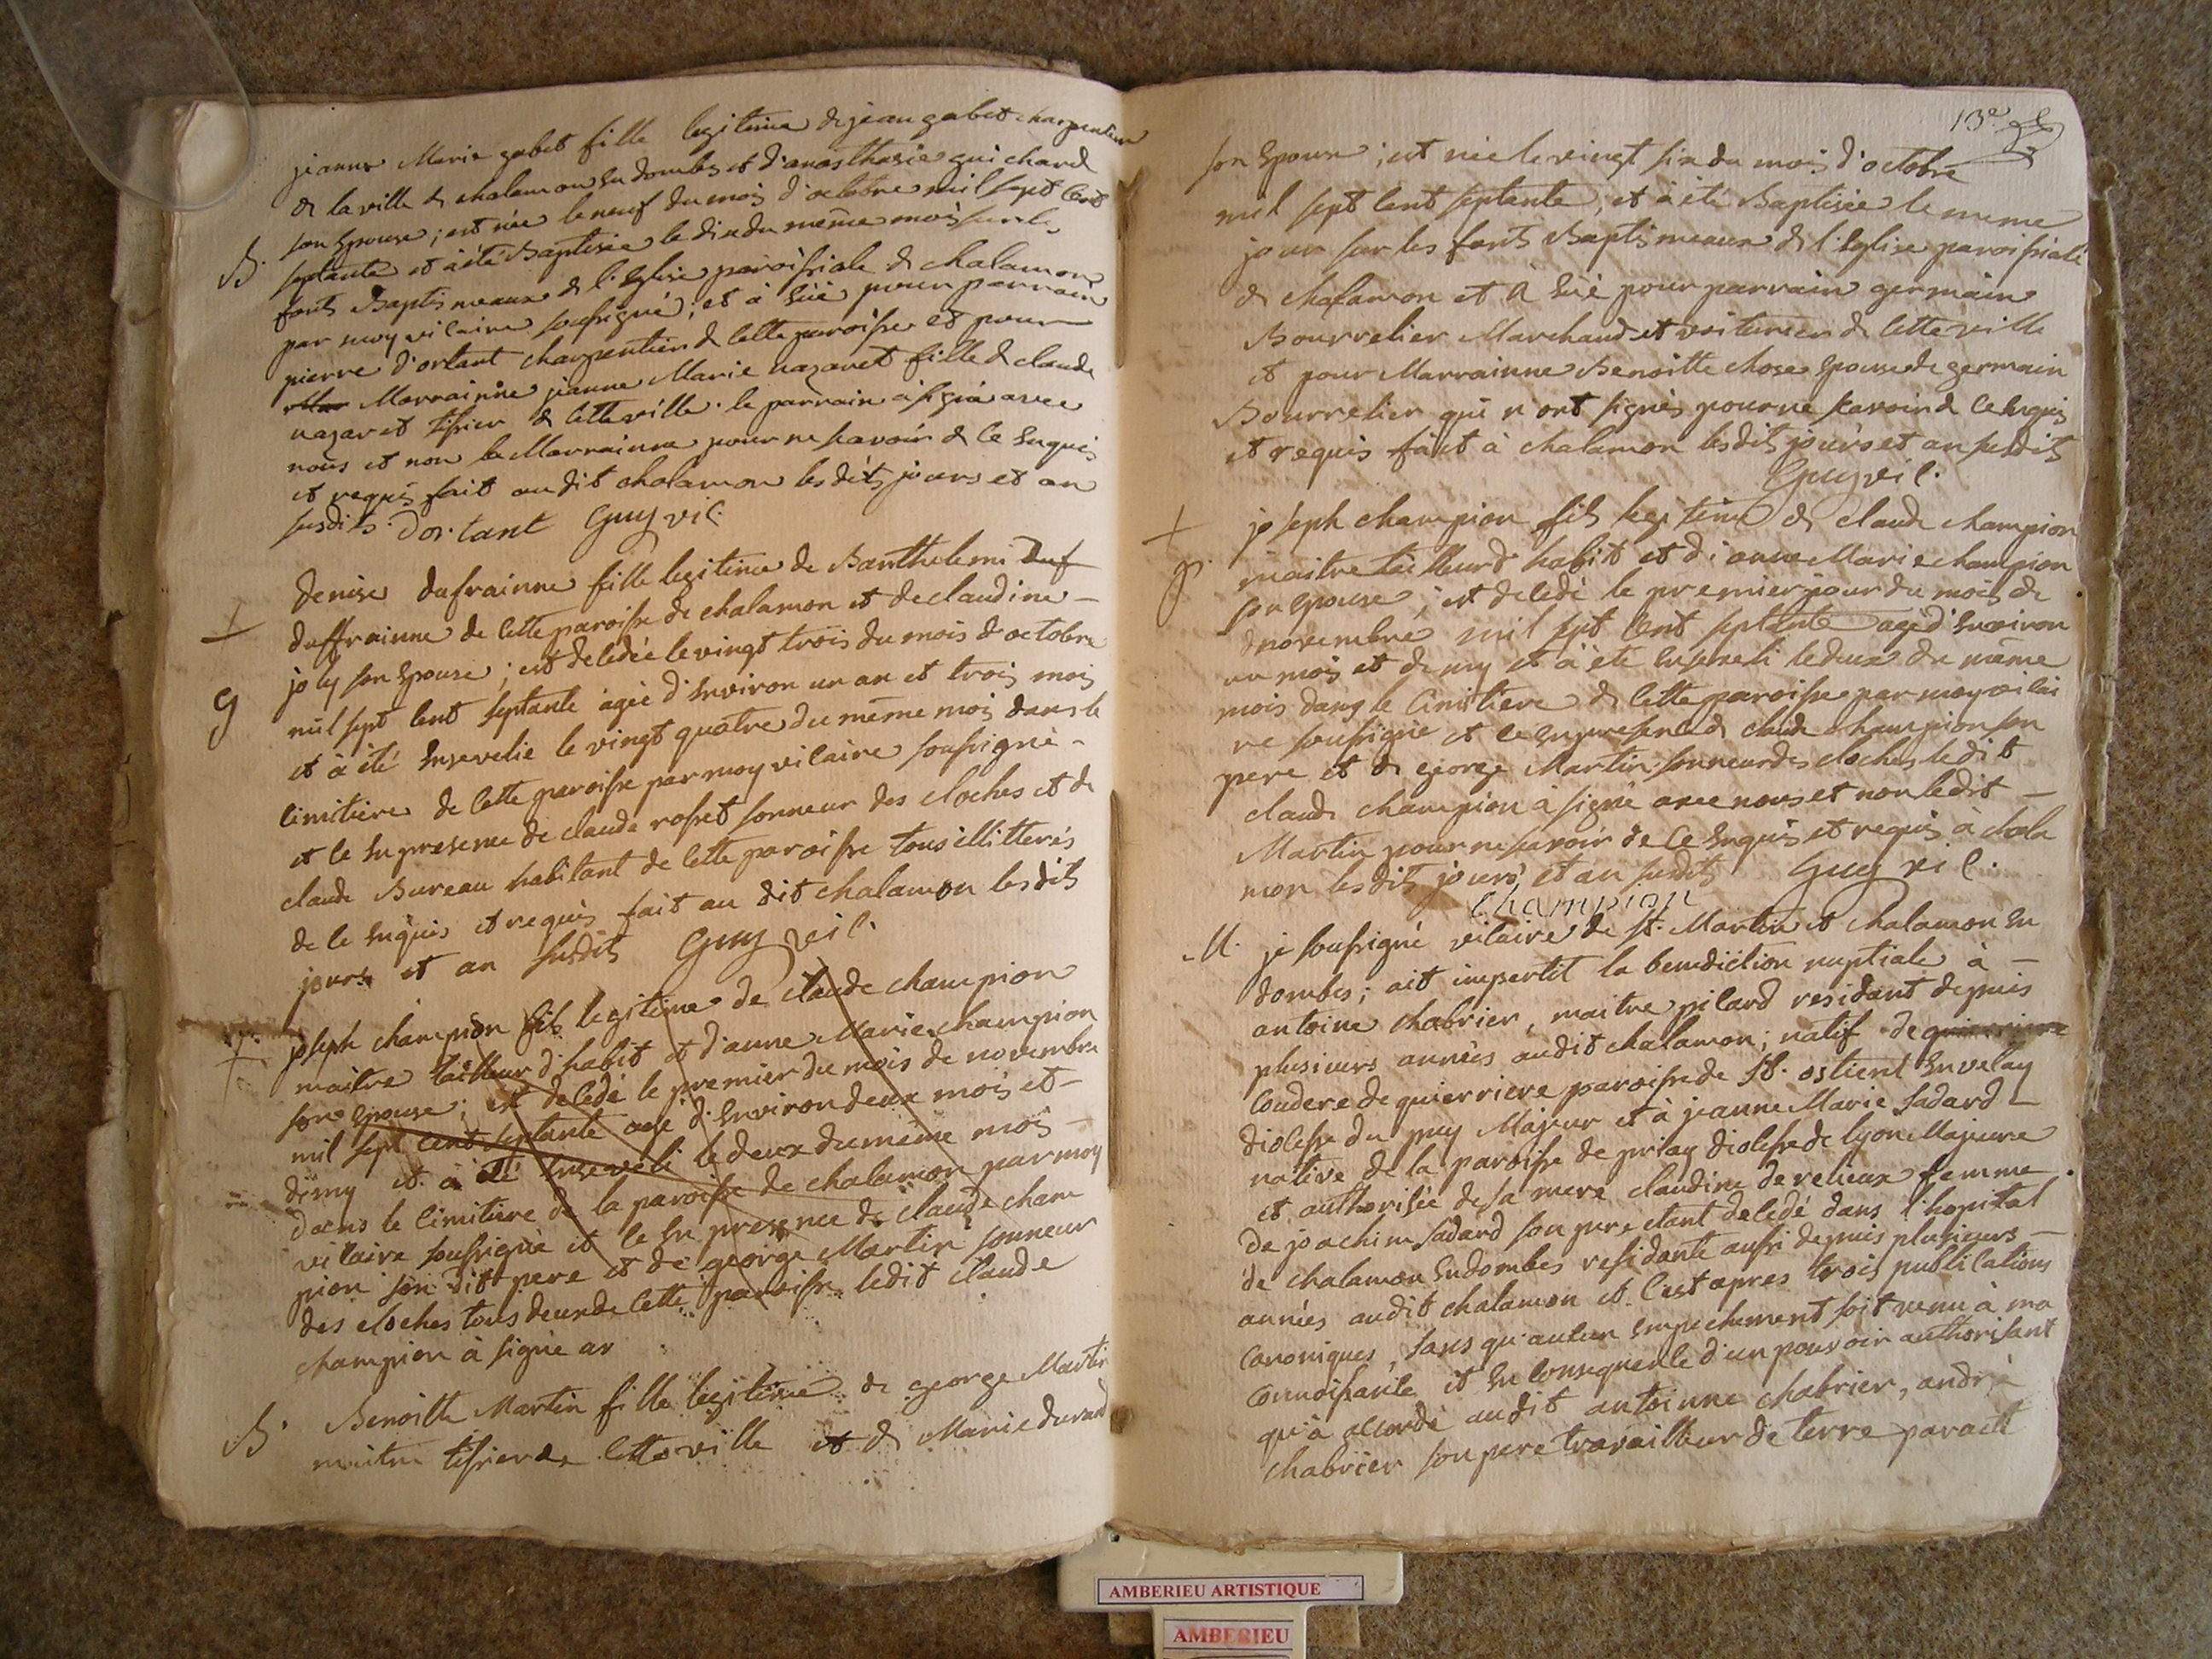 jeanne Marie gabet fille legitime de jean gabet charpentier
de la ville de chalamon en dombes et d'anasthasie guichard
son Epouse ; est née le neuf du mois d'octobre mil sept cent
B. septante et à été Baptisée le dix du même mois sur les
fonts Baptismeaux de l'Eglise paroissiale de chalamon
par moy vicaire soussigné, et à Eüe pour parrain
pierre d'ortant charpentier de cette paroisse et pour
Marrainne jeanne Marie nazaret fille de claude
nazaret tissier de cette ville. le parrain à signé avec
nous et non la Marrainne pour ne scavoir de ce Enquis
et requis fait au dit chalamon les dits jours et an
susdits. Dortant Guy vic.
denise dufrainne fille legitime de Barthelemi Duf
duffrainne de cette paroisse de chalamon et de claudine
joly son Epouse ; est decedée le vingt trois du mois d'octobre
g mil sept cent septante agée d'Environ un an et trois mois
et à été Ensevelie le vingt quatre du même mois dans le
cimitiere de cette paroisse par moy vicaire soussigné
et ce En presence de claude rosset sonneur des cloches et de
claude Bureau habitant de cette paroisse tous illitterés
de ce Enquis et requis fait au dit chalamon les dits
jours et an susdits Guy vic.
joseph champion fils legitime de claude champion
maitre tailleur d'habit et d'anne Marie champion
son Epouse ; est decedé le premier du mois de novembre
mil sept cent septante agé d'Environ deux mois et
demy et à été Enseveli le deux du même mois
dans le cimitiere de la paroisse de chalamon par moy
vicaire soussigné et ce En presence de claude cham
pion son dit pere et de george Martin sonneur
des cloches tous deux de cette paroisse ledit claude
champion à signé av
B. Benoitte Martin fille legitime de george Martin
maitre tissier de cette ville et de Marie durand
13e
son Epouse ; est née le vingt six du mois d'octobre
mil sept cent septante, et à été Baptisée le meme
jour sur les fonts Baptismeaux de l'Eglise paroissiale
de chalamon et a Eüe pour parrain germain
Bourrelier Marchand et voiturier de cette ville
et pour Marrainne Benoitte chose Epouse de germain
Bourrelier qui n'ont signés pour ne scavoir de ce Enquis
et requis fait à chalamon les dits jours et an susdits
Guy vic.
joseph champion fils legitime de claude champion
maitre tailleur d'habit et d'anne Marie champion
son Epouse ; est decedé le premier jour du mois de
novembre mil sept cent septante agé d'Environ
un mois et demy et à été Enseveli le deux du même
mois dans le cimitiere de cette paroisse par moy vicai
re soussigné et ce En presence de claude champion son
pere et de george Martin sonneur des cloches ledit
claude champion à signé avec nous et non ledit
Martin pour ne scavoir de ce Enquis et requis à chala
mon les dits jours et an susdits Guy vic.
Champion
M. je soussigné vicaire de st. Martin et chalamon En
dombes ; ait impertit la benediction nuptiale à
antoine chabrier, maitre pilard residant depuis
plusieurs années audit chalamon ; natif de
Coudere de quierriere paroisse de st. ostient En velay
diocesse du puy Majeur et à jeanne Marie sadard
native de la paroisse de priay diocesse de lyon Majeure
et authorisée de sa mere claudine de relieux femme
de joachim sadard son pere etant decedé dans l'hopital
de chalamon En dombes residante aussi depuis plusieurs
années audit chalamon et c'est apres trois publications
canoniques, sans qu'aucun Empechement soit venu à ma
connoissance et En consequence d'un pouvoir authorisant
qu'à accordé audit antoinne chabrier, andré
chabrier son pere travailleur de terre par acte
AMBERIEU ARTISTIQUE
AMBERIEU